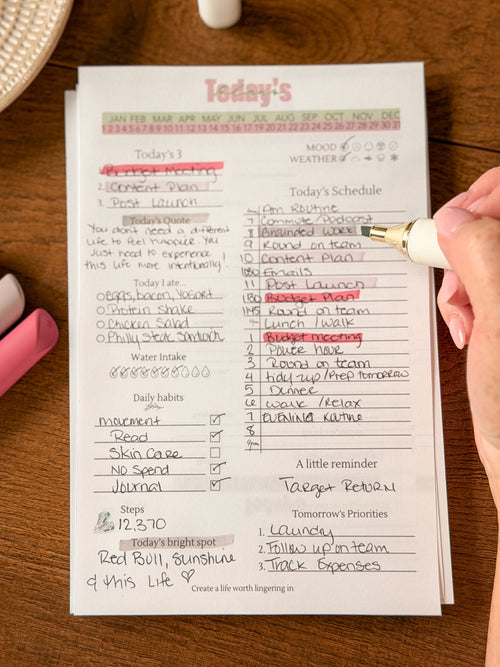 Today's
JAN FEB MAR APR MAY JUN JUL AUG SEP OCT NOV DEC
1 2 3 4 5 6 7 8 9 10 11 12 13 14 15 16 17 18 19 20 21 22 23 24 25 26 27 28 29 30 31
MOOD
WEATHER
Today's 3
1. Budget Meeting
2. Content Plan
3. Post Launch
Today's Quote
You don't need a different
life to feel happier. You
Just need to experience
this life more intentionally!
Today I ate...
Eggs, bacon, Yogurt
Protein Shake
Chicken Salad
Philly Steak Sandwich
Water Intake
Daily habits
Movement
Read
Skin Care
NO Spend
Journal
Steps
12,370
Today's bright spot
Red Bull, Sunshine
& this Life ♡
Today's Schedule
Am Routine
7 Commute/Podcast
8 Grounded Work
9 Round on team
10 Content Plan
1030 Emails
11 Post Launch
1130 Budget Plan
1145 Round on team
Lunch/Walk
1 Budget meeting
2 Power hour
3 Round on team
4 tidy up/Prep tomorrow
5 Dinner
6 Walk/Relax
7 EVENING Routine
8
9pm
A little reminder
Target Return
Tomorrow's Priorities
1. Laundry
2. Follow up on team
3. Track Expenses
Create a life worth lingering in